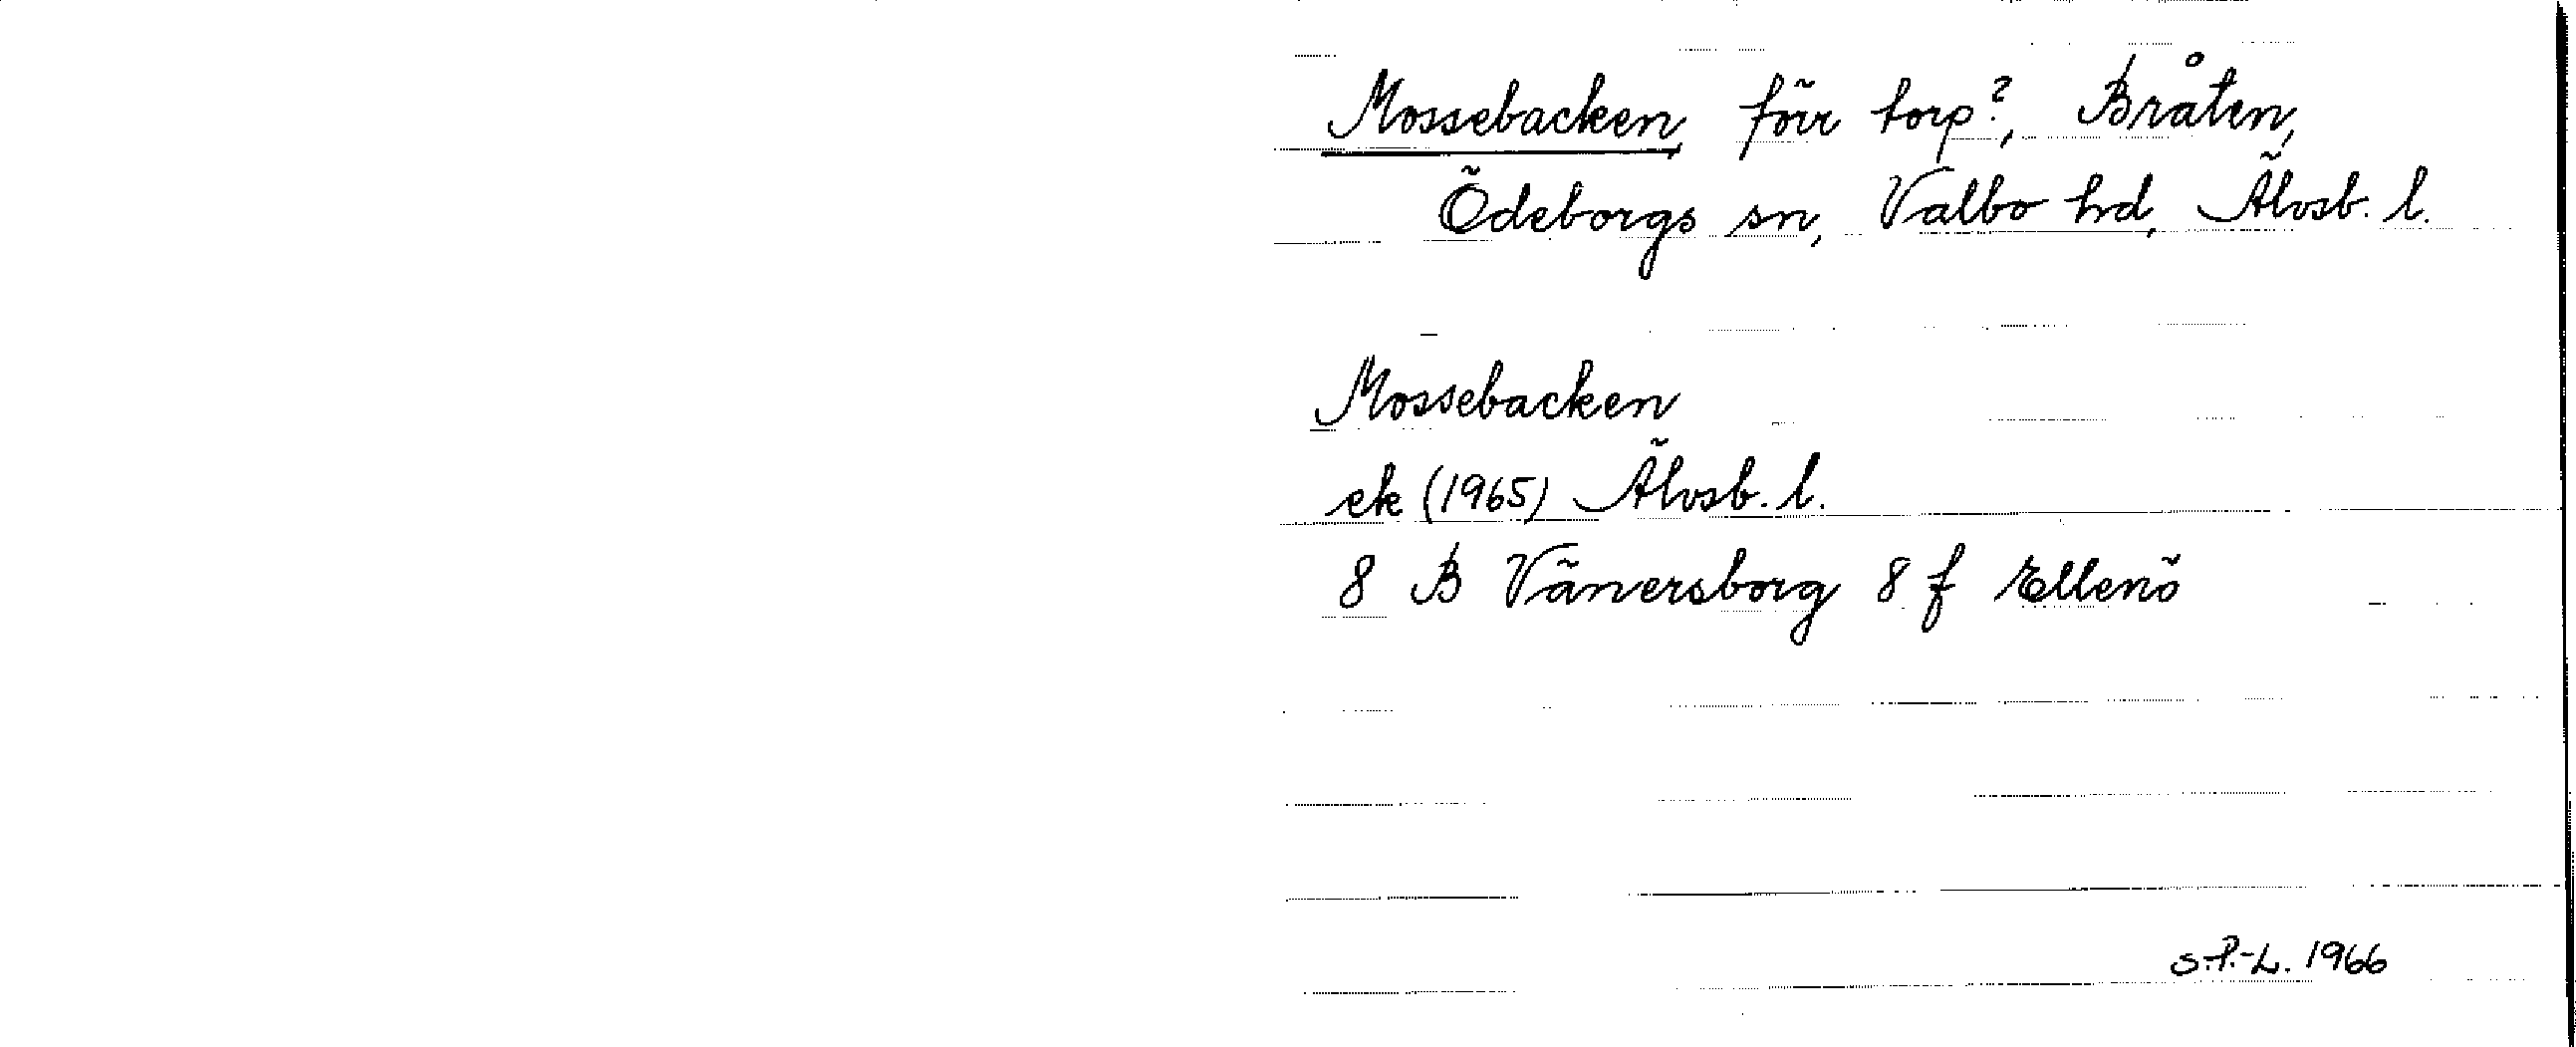 Mossebacken, förr torp?, Bråten,
Ödeborgs sn, Valbo hd, Älvsb. l.
Mossebacken
ek (1965) Älvsb. l.
8 B Vänersborg 8 f Ellenö
S.P.-L. 1966